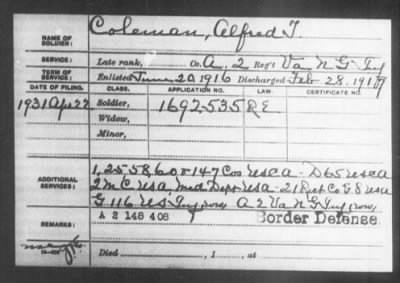 Coleman, Alfred T.
NAME OF SOLDIER:
SERVICE: Late rank, Co. A, 2 Reg't Va N G Inf
TERM OF SERVICE: Enlisted June 20, 1916 Discharged Feb 28, 1917
DATE OF FILING. CLASS. APPLICATION NO. LAW. CERTIFICATE NO.
1931 Apr 22 Soldier, 1692535 R E
Widow,
Minor,
ADDITIONAL SERVICES: 1, 25 58, 60 & 147 Cos USCA - D 65 USCA
2 M C USA, Med Dept USA - 21 Rct Co G S USA
G 116 US Inf A 2 Va N G Inf
A 2 148 408 Border Defense
REMARKS:
Died , 1 , at